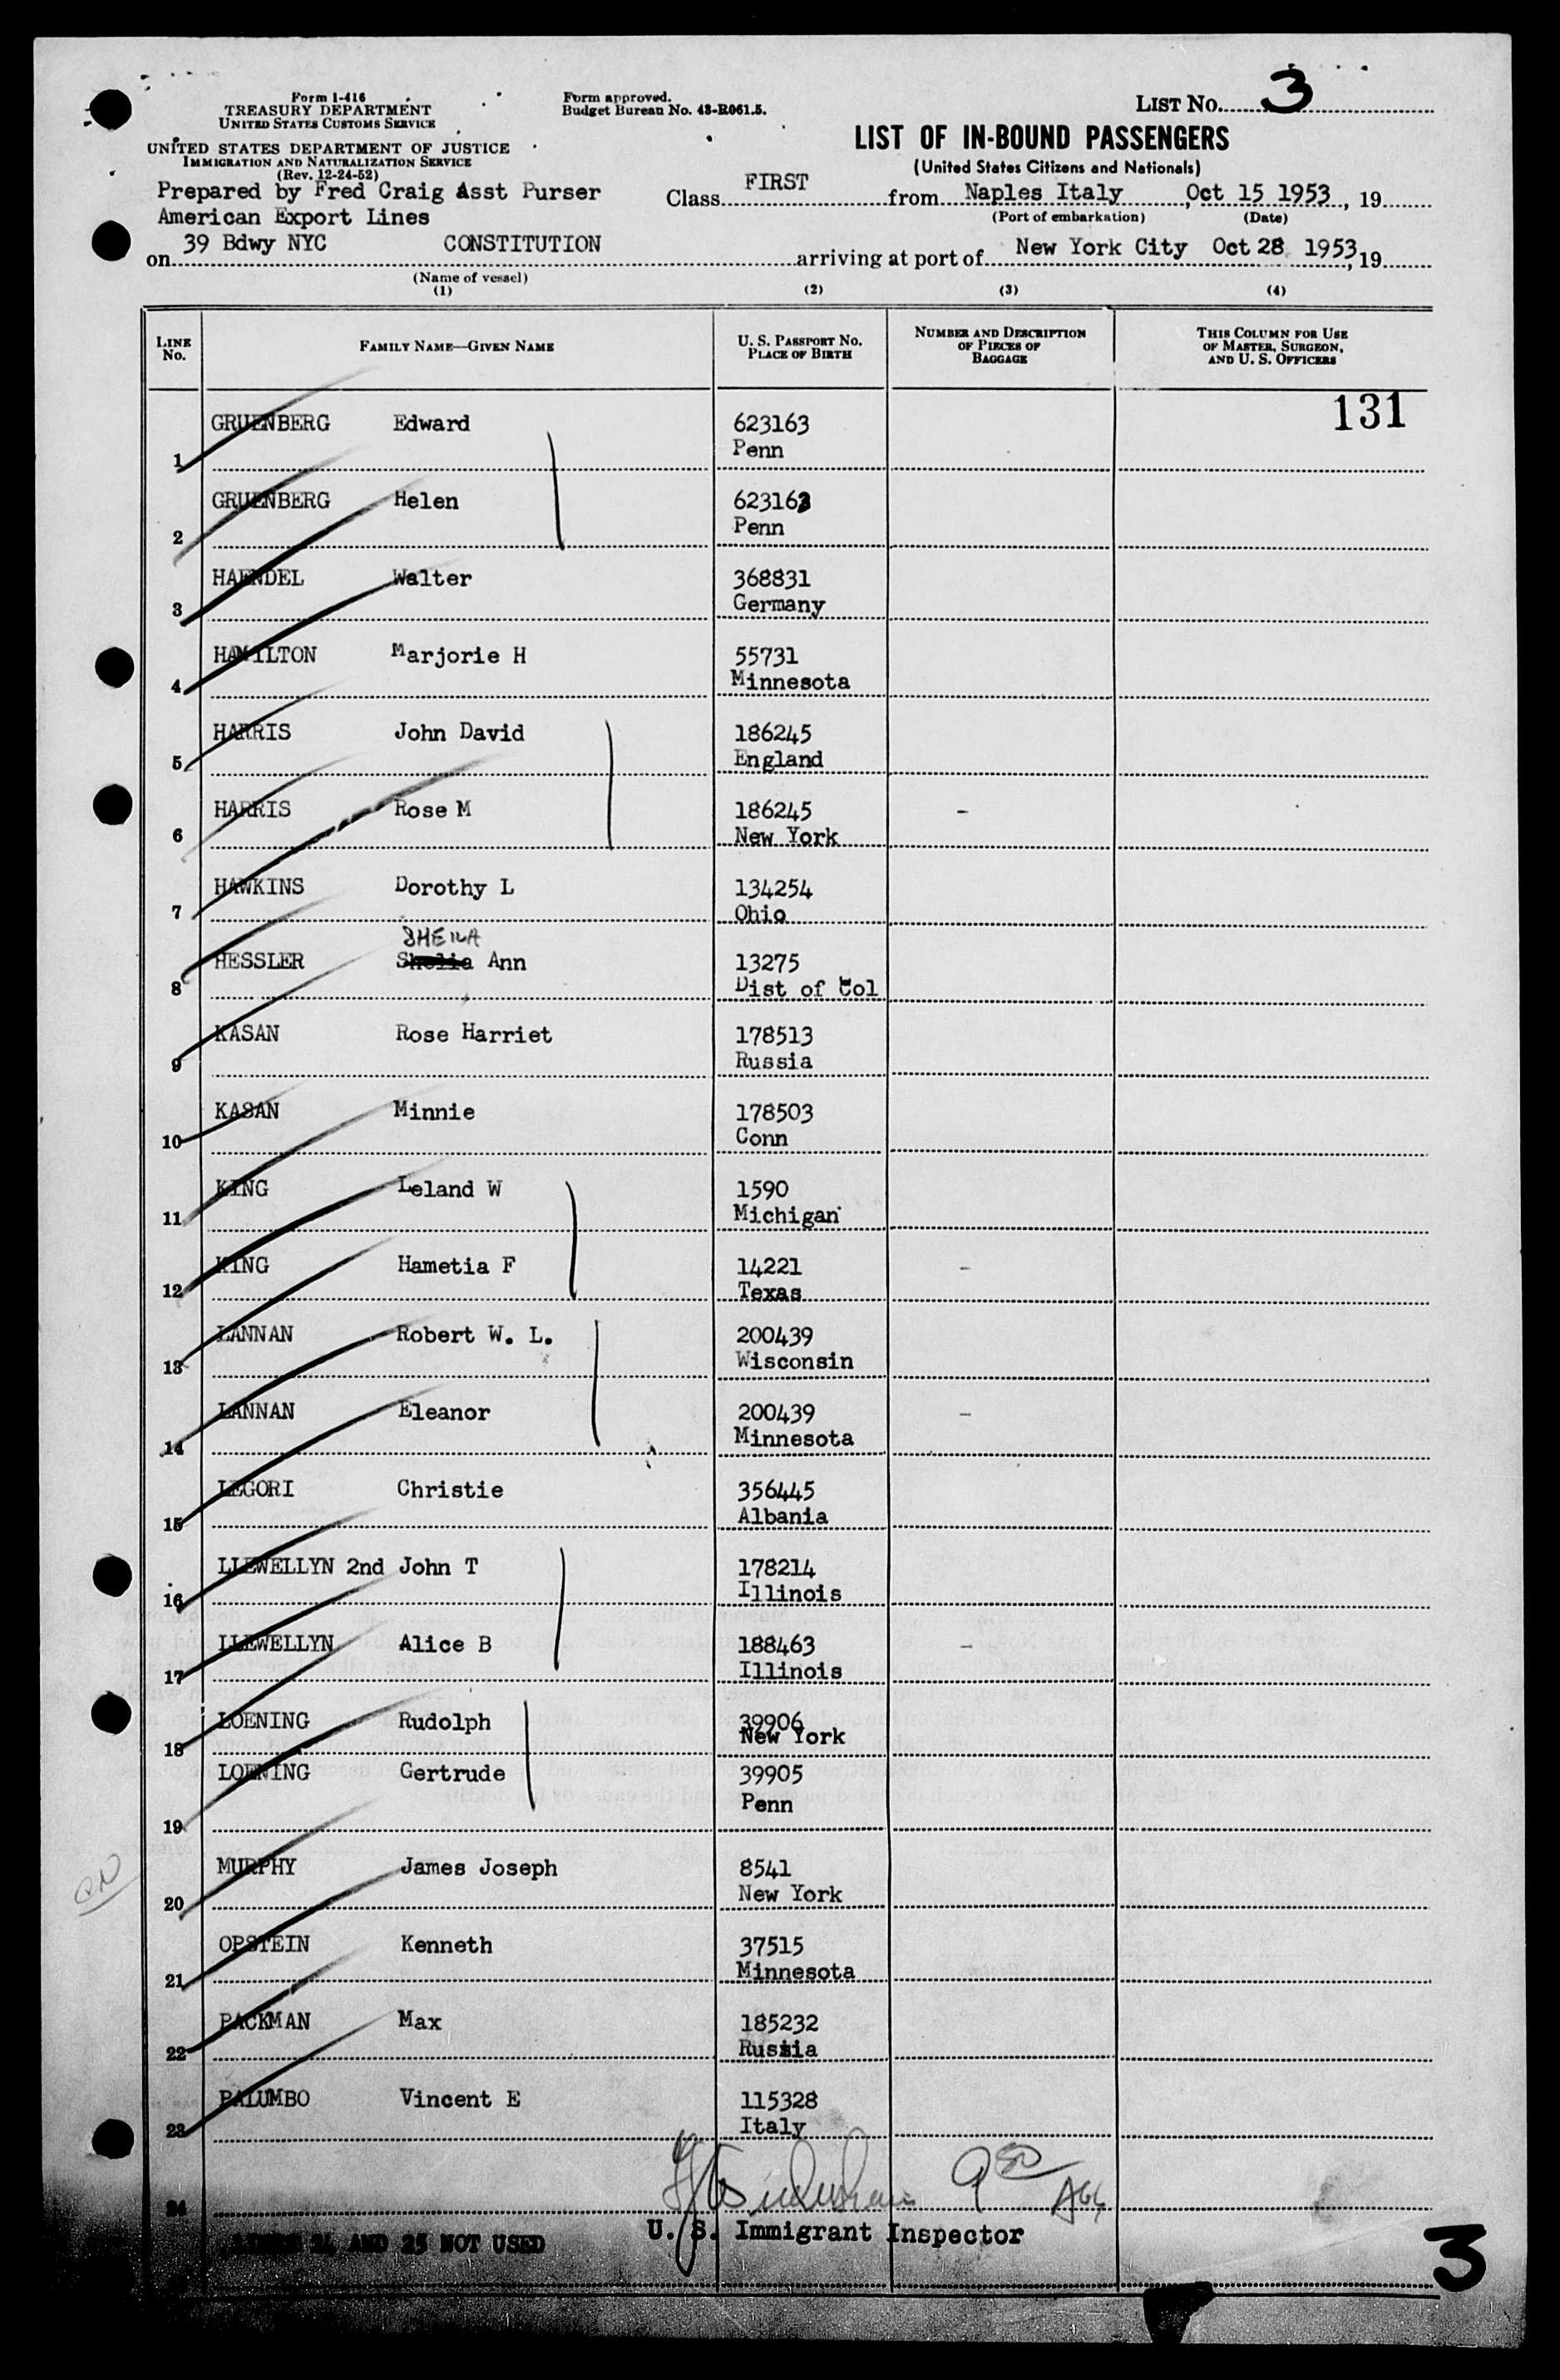 Form I-416
TREASURY DEPARTMENT
UNITED STATES CUSTOMS SERVICE
UNITED STATES DEPARTMENT OF JUSTICE
IMMIGRATION AND NATURALIZATION SERVICE
(Rev. 12-24-52)
Form approved.
Budget Bureau No. 43-R061.5.
LIST NO. 3
LIST OF IN-BOUND PASSENGERS
(United States Citizens and Nationals)
Prepared by Fred Craig Asst Purser
American Export Lines
Class FIRST from Naples Italy, Oct 15 1953, 19
(Port of embarkation) (Date)
on 39 Bdwy NYC CONSTITUTION arriving at port of New York City Oct 28 1953, 19
(Name of vessel)
(1) (2) (3) (4)
LINE No. FAMILY NAME—GIVEN NAME U. S. PASSPORT No. PLACE OF BIRTH NUMBER AND DESCRIPTION OF PIECES OF BAGGAGE THIS COLUMN FOR USE OF MASTER, SURGEON, AND U. S. OFFICERS
131
GRUENBERG Edward 623163
1 Penn
GRUENBERG Helen 623163
2 Penn
HAENDEL Walter 368831
3 Germany
HAMILTON Marjorie H 55731
4 Minnesota
HARRIS John David 186245
5 England
HARRIS Rose M 186245 -
6 New York
HAWKINS Dorothy L 134254
7 Ohio
SHEILA
HESSLER Shelia Ann 13275
8 Dist of Col
KASAN Rose Harriet 178513
9 Russia
KASAN Minnie 178503
10 Conn
KING Leland W 1590
11 Michigan
KING Hametia F 14221 -
12 Texas
LANNAN Robert W. L. 200439
13 Wisconsin
LANNAN Eleanor 200439 -
14 Minnesota
LEGORI Christie 356445
15 Albania
LLEWELLYN 2nd John T 178214
16 Illinois
LLEWELLYN Alice B 188463 -
17 Illinois
LOENING Rudolph 39906
18 New York
LOENING Gertrude 39905
19 Penn
MURPHY James Joseph 8541
20 New York
OPSTEIN Kenneth 37515
21 Minnesota
PACKMAN Max 185232
22 Russia
PALUMBO Vincent E 115328
23 Italy
24
U. S. Immigrant Inspector
LINES 24 AND 25 NOT USED
3